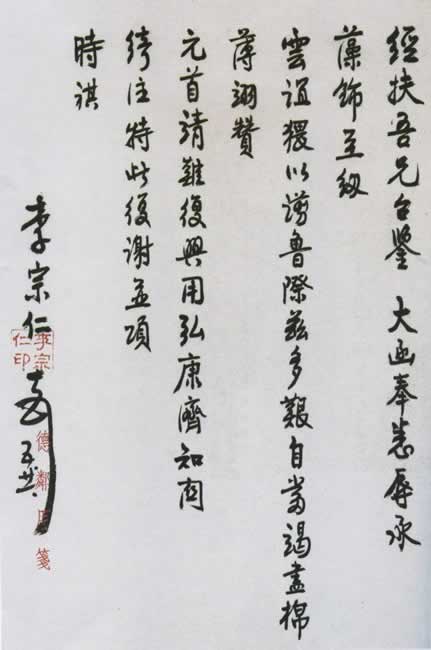 經扶吾兄台鑒 大函奉悉辱承
藻飾至紉
雲誼猥以謭魯際茲多艱自當竭盡棉
薄翊贊
元首靖難復興用弘康濟知關
綺注特此復謝並頌
時祺
李宗仁
李宗仁印
德鄰用箋